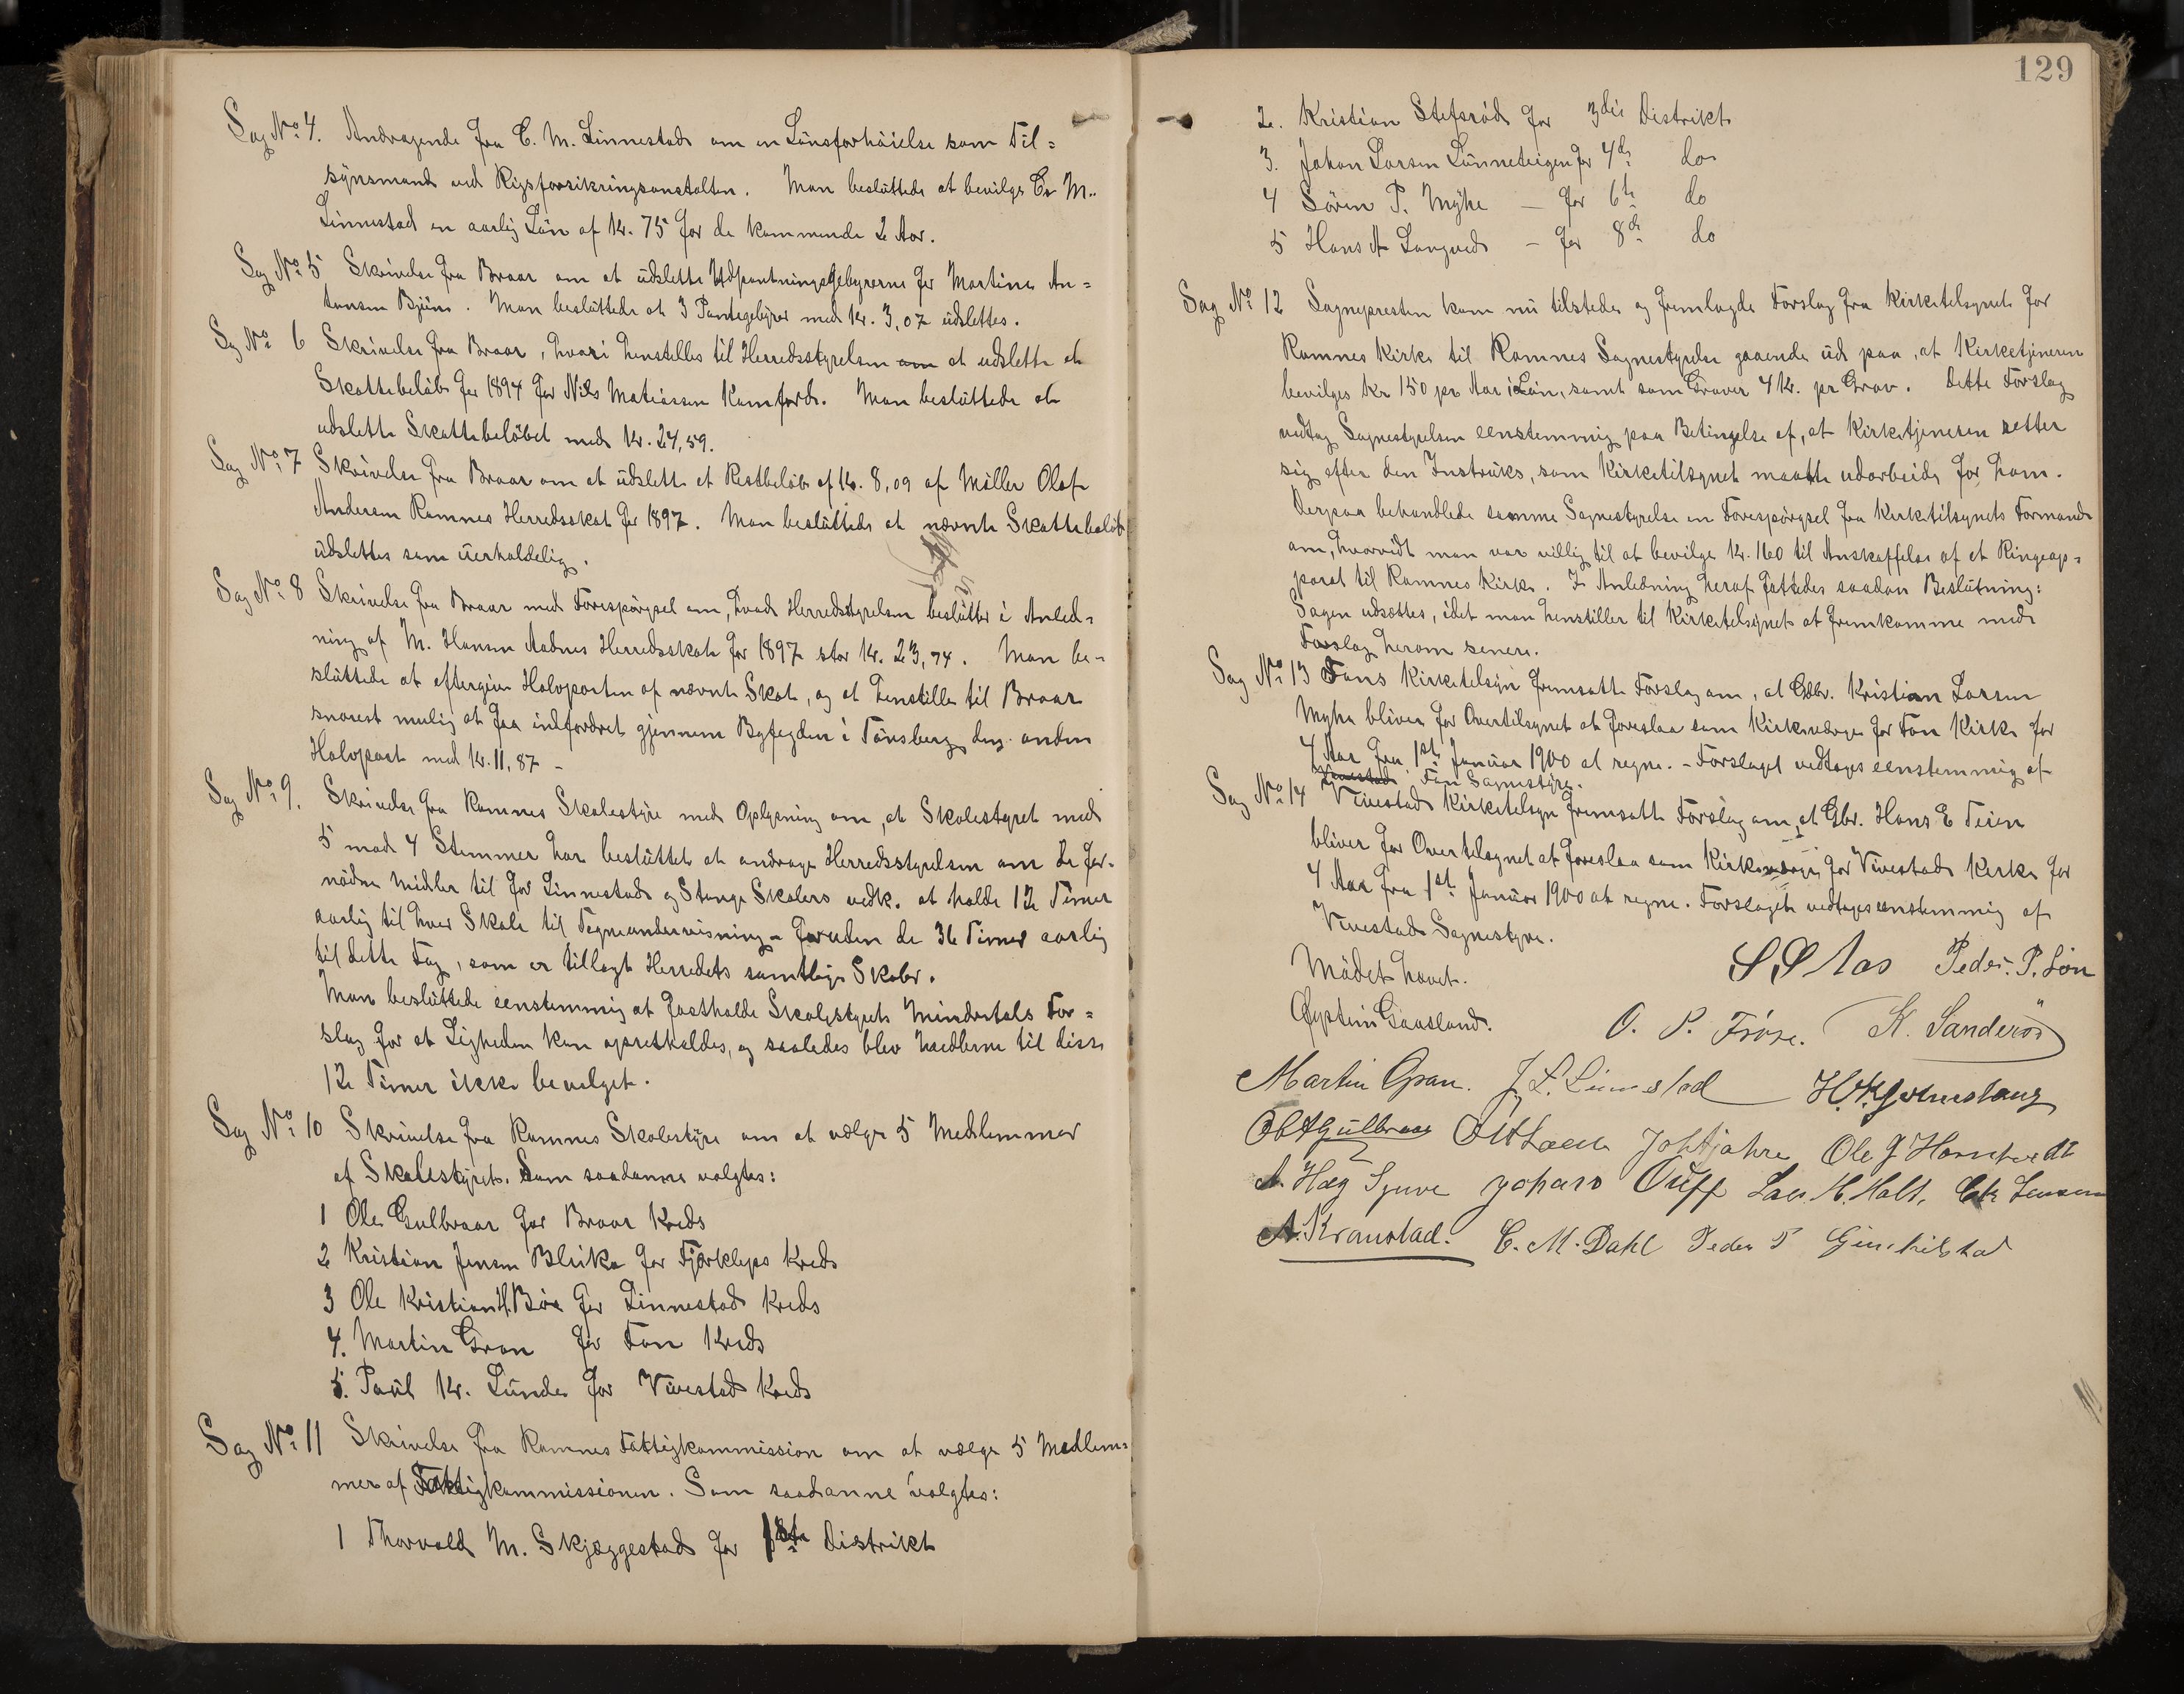 Sag No. 4. Andragende fra C. M. Linnestad om en Lønsforhøielse som Til=
synsmand ved Rigsforsikringsanstalten. Man besluttede at bevilge C. M.
Linnestad en aarlig Løn af Kr. 75 for de kommende 2 Aar.
Sag No. 5 Skrivelse fra Braar om at udslette Udpantningsgebyrerne for Martine An=
tonsen Bjüne. Man besluttede at 3 Pantegebyrer med Kr. 3,07 udslettes.
Sag No. 6 Skrivelse fra Braar, hvori henstilles til Herredsstyrelsen om at udslette et
Skattebeløb for 1894 for Nils Matiassen Kamfjord. Man besluttede at
udslette Skattebeløbet med Kr. 24,59.
Sag No. 7 Skrivelse fra Braar om at udslette et Restbeløb af Kr. 8,09 af Møller Olaf
Andersen Ramnes Herredsskat for 1897. Man besluttede at nævnte Skattebeløb
udslettes som uerholdelig.
Sag No. 8 Skrivelse fra Braar med Forespørgsel om, hvad Herredsstyrelsen beslutter i Anled=
ning af M. Hansen Aadnes Herredsskat for 1897 stor Kr. 23,74. Man be=
sluttede at eftergive Halvparten af nævnte Skat, og at henstille til Braar
snarest mulig at faa indfordret gjennem Byfogden i Tønsberg den anden
Halvpart med Kr. 11,87 –
Sag No. 9. Skrivelse fra Ramnes Skolestyre med Oplysning om, at Skolestyret med
5 mod 4 Stemmer har besluttet at andrage Herredsstyrelsen om de for=
nødne Midler til for Linnestad og Stange Skolers vedk. at holde 12 Timer
aarlig til hver Skole til Tegneundervisning – foruden de 36 Timer aarlig
til dette Fag, som er tillagt Herredets samtlige Skoler.
Man besluttede eenstemmig at fastholde Skolestyrets Mindretals For=
slag for at Ligheden kan opretholdes, og saaledes blev Midlerne til disse
12 Timer ikke bevilget.
Sag No. 10 Skrivelse fra Ramnes Skolestyre om at vælge 5 Medlemmer
af Skolestyret. Som saadanne valgtes:
1 Ole Gulbraar for Braar Kreds
2 Kristian Jensen Blika for Fjærkleps Kreds
3 Ole Kristian H. Bøe for Linnestad Kreds
4. Martin Gran for Fon Kreds
5. Paul Kr. Lunde for Vivestad Kreds
Sag No. 11 Skrivelse fra Ramnes Fattigkommission om at vælge 5 Medlem=
mer af Fattigkommissionen. Som saadanne valgtes:
1 Thorvald M. Skjæggestad for 1ste Distrikt
129
2. Kristian Stefsrød for 3die Distrikt
3. Johan Larsen Lønneteigen for 4de do
4 Søren P. Myhre – for 6te do
5 Hans A Langved – for 8de do
Sag No. 12 Sognepresten kom nu tilstede og fremlagde Forslag fra Kirketilsynet for
Ramnes Kirke til Ramnes Sognestyrelse gaaende ud paa, at Kirketjeneren
bevilges Kr 150 pr Aar i Løn, samt som Graver 4 Kr. pr Grav. Dette Forslag
vedtog Sognestyrelsen eenstemmig paa Betingelse af, at Kirketjeneren retter
sig efter den Instruks, som Kirketilsynet maatte udarbeide for ham.
Derpaa behandlede samme Sognestyrelse en Forespørgsel fra Kirketilsynets Formand
om, hvorvidt man var villig til at bevilge Kr. 160 til Anskaffelse af et Ringeap=
parat til Ramnes Kirke. I Anledning heraf fattedes saadan Beslutning:
Sagen udsættes, idet man henstiller til Kirketilsynet at fremkomme med
Forslag herom senere.
Sag No. 13 Fons Kirketilsyn fremsatte Forslag om, at Gbr. Kristian Larsen
Myhre bliver for Overtilsynet at foreslaa som Kirkeværge for Fon Kirke for
4 Aar fra 1st Januar 1900 at regne. – Forslaget vedtages eenstemmig af
Fon Sognestyre.
Sag No. 14 Vivestad Kirketilsyn fremsatte Forslag om, at Gbr. Hans E Teien
bliver for Overtilsynet at foreslaa som Kirkeværge for Vivestad Kirke for
4 Aar fra 1st Januar 1900 at regne. Forslaget vedtages eenstemmig af
Vivestad Sognestyre.
Mødet hævet. S. P. Aas Peder. P. Løn
Øystein Gaasland. O. P. Frøse. K. Sanderød
Martin Gran. J. L. Linnestad
Ole A Gulbraar Joh Fjahre Ole J Horntvedt
A. Høg Sjuve Johan Ouff Lars M. Holt. Chr Jensen
A. Kranstad. C. M. Dahl Peder P